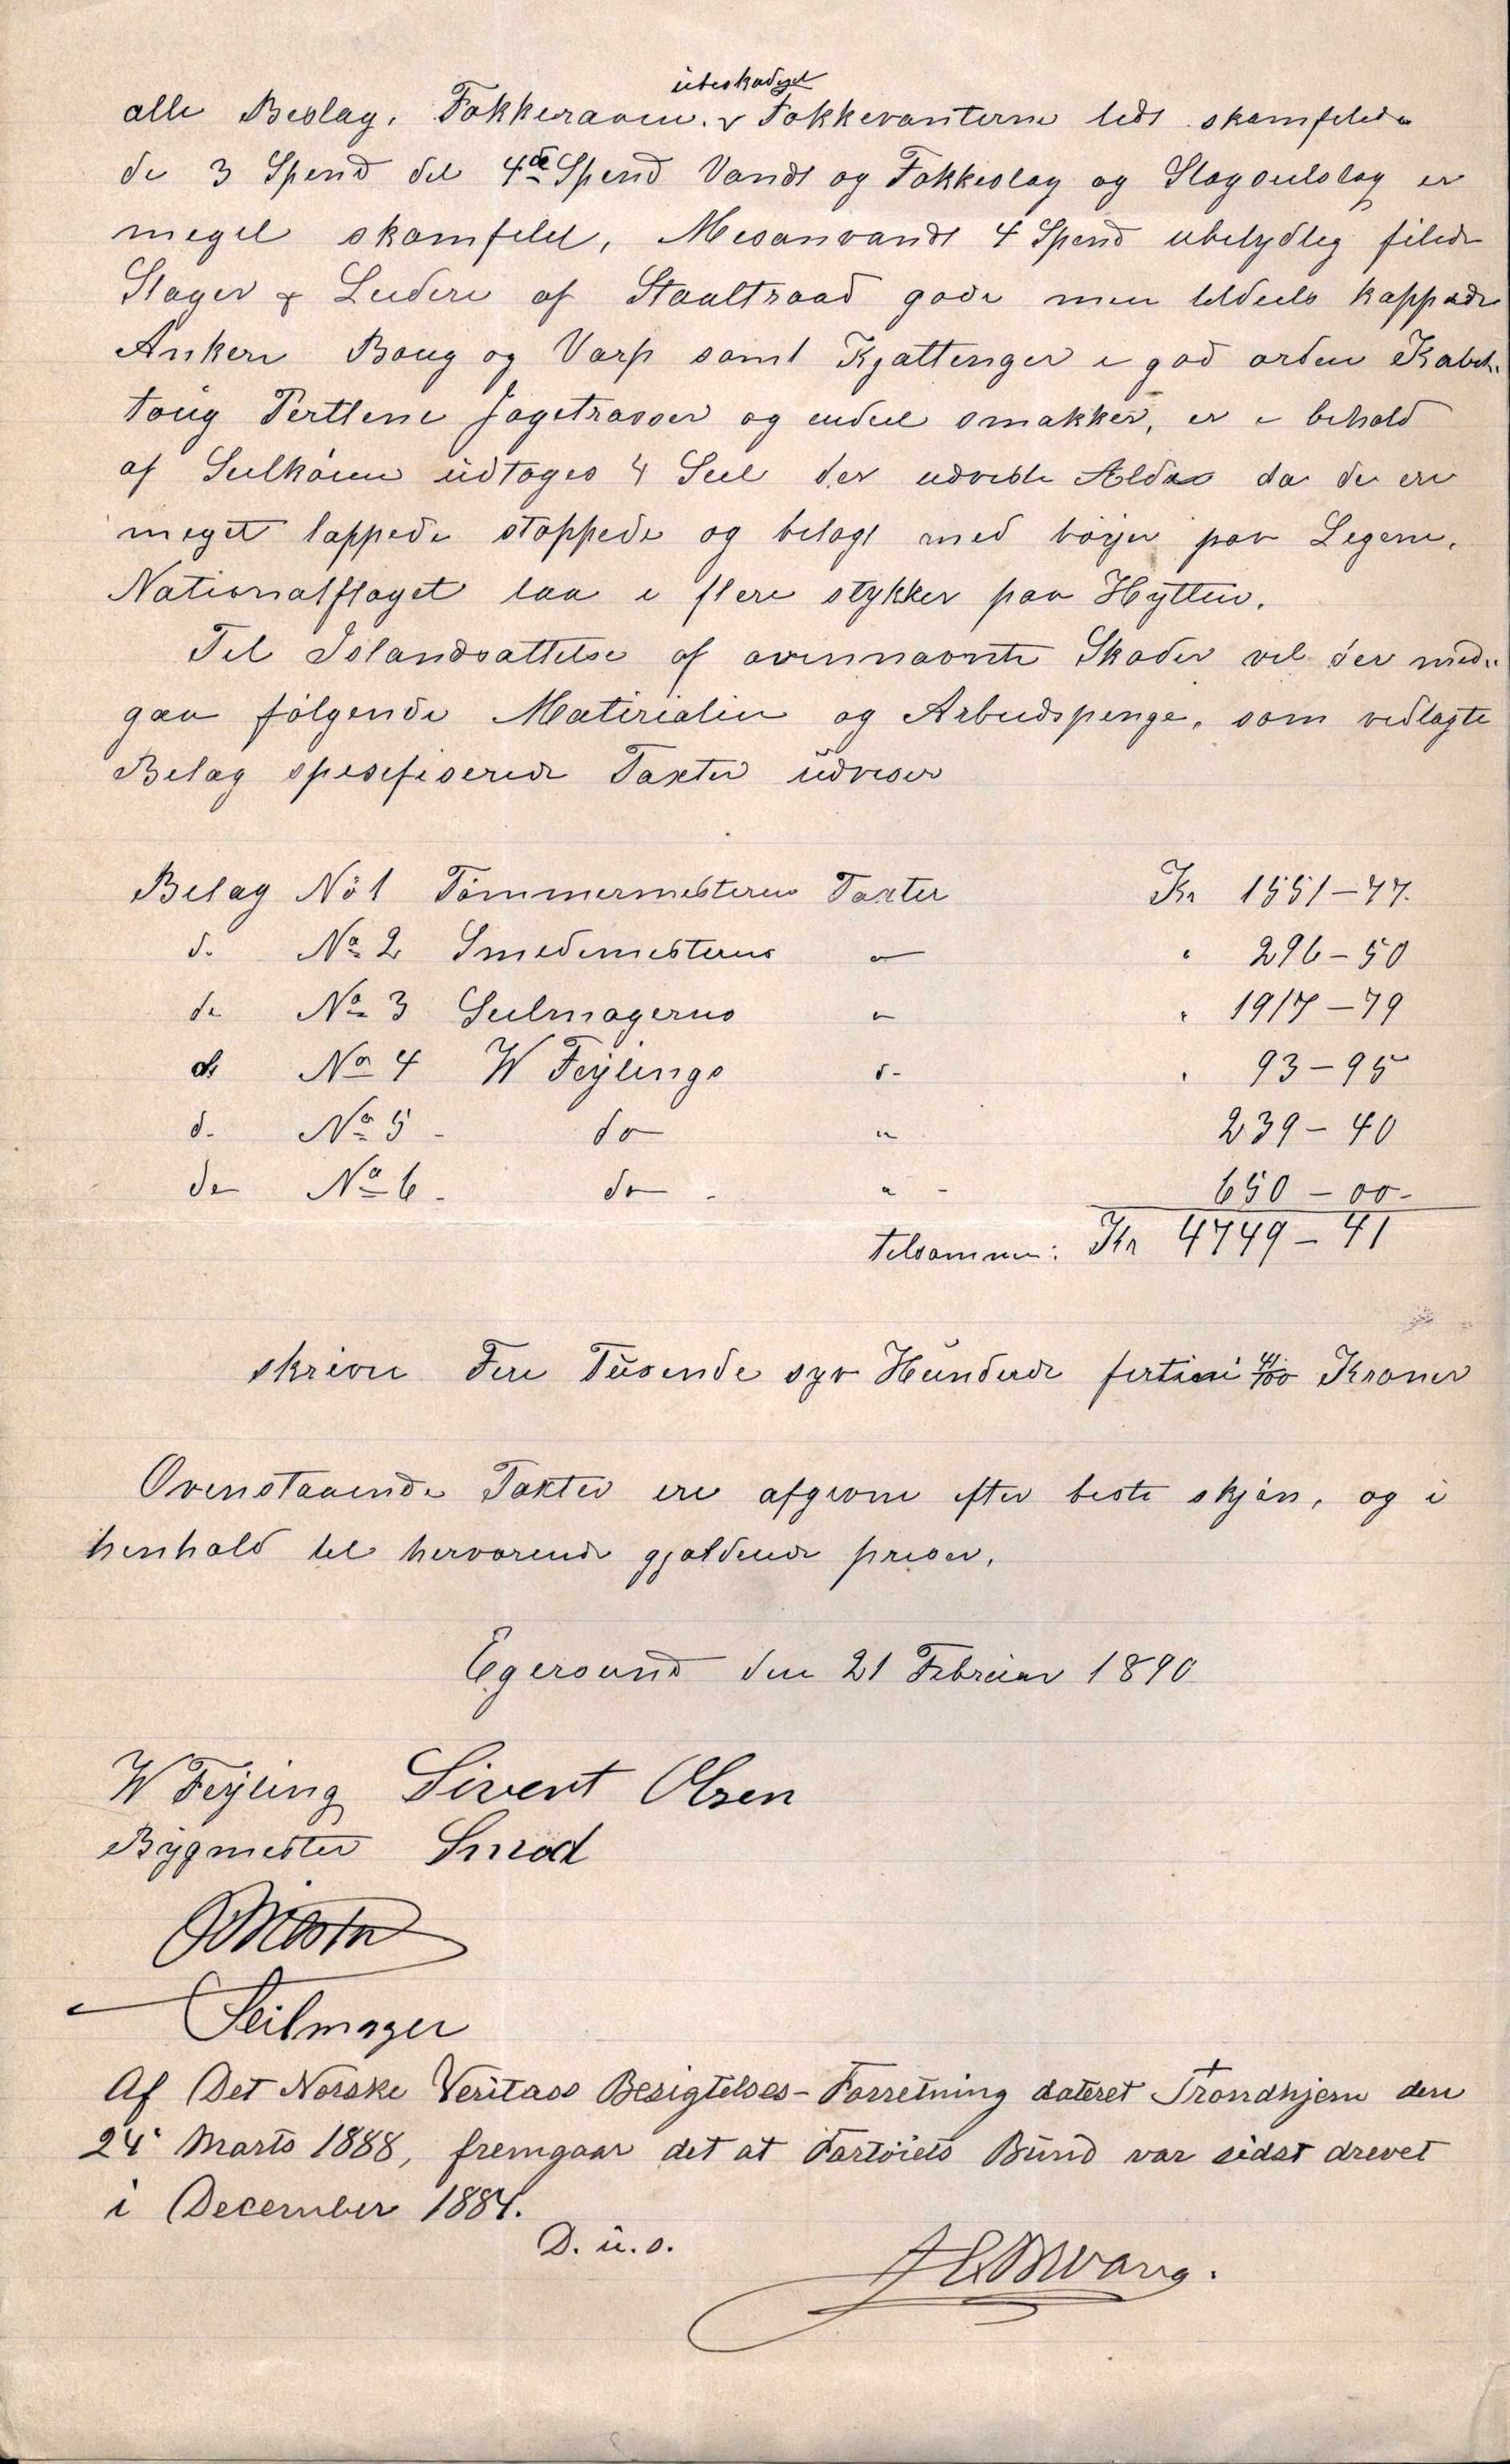 ubeskadiget
alle Beslag, Fokkeraaen. v Fokkevanterne lidt skamfilede
de 3 Spend det 4de Spend Vandt og Fokkestag og Stagseilstag er
meget skamfilet, Mesanvandt 4 Spend ubetydlig filede
Stager & Leidere af Staaltraad gode men tildeels kappede
Ankere Boug og Varp samt Kjættinger i god orden Kabel-
toug Pertlene Jagetrosser og endeel smækker, er i behold
af Seilkøien udtoges 4 Seil der udviste Ælde da de ere
meget lappede stoppede og belagt med bøyer paa Legene.
Nationalflaget laa i flere stykker paa Hytten.
Til Istandsættelse af ovennævnte Skader vil der med-
gaa følgende Materialier og Arbeidspenge, som vedlagte
Belag spesifiserede Taxter udviser
Belag No 1 Tømmermesterens Taxter Kr 1551-77.
do No 2 Smedemesterens " " 296-50
do No 3 Seilmagerens " " 1917-79
do No 4 W Feylings do - " 93-95
do No 5 - do " 239-40
do No 6 - do - " - 650-00-
tilsammen: Kr 4749-41
skrive Fire Tusende syv Hunderde førtini 41/100 Kroner
Ovenstaaende Taxter ere afgivne efter beste skjøn, og i
henhold til herværende gjældende priser.
Egersund den 21 Februar 1890
W Feyling Sivert Olsen
Bygmester Smed
Seilmager
Af Det Norske Veritass Besigtelses-Forretning dateret Trondhjem den
24' Marts 1888, fremgaar det at Fartøiets Bund var sidst drevet
i December 1884.
D. u. s.